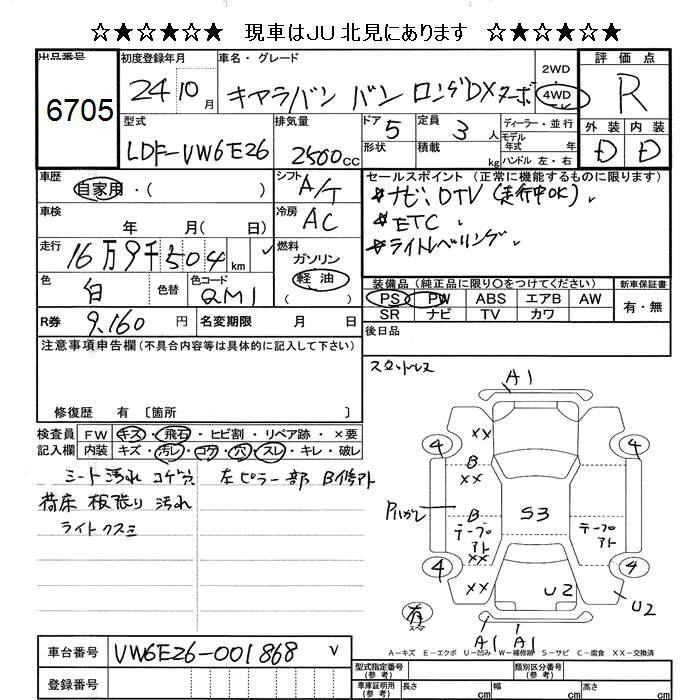 ☆★☆★☆★☆ 現車はJU北見にあります ☆★☆★☆★☆
出品番号 初度登録年月 車名・グレード 2WD 評価点
6705 24 10月 キャラバン バン ロングDXターボ 4WD R
型式 排気量 ドア 5 定員 3人 ディーラー・並行 外装 内装
LDF-VW6E26 2500cc 形状 積載 kg モデル年式 年式 D D
ハンドル 左・右
車歴 自家用・( ) シフト A/T セールスポイント (正常に機能するものに限ります)
＊ナビ、DTV (走行中OK)
車検 年 月( 日) 冷房 AC ＊ETC
走行 16万9千504km 燃料 ガソリン ＊ライトレベリング
軽油
( )
色 白 色替 色コード QM1 装備品 (純正品に限り○をつけてください) 新車保証書
PS PW ABS エアB AW 有・無
SR ナビ TV カワ
R券 9,160円 名変期限 月 日 後日品
注意事項申告欄(不具合内容等は具体的に記入して下さい)
スタットレス
修復歴 有 〔箇所 〕
検査員 FW キズ・飛石・ヒビ割・リペア跡・×要
記入欄 内装 キズ・汚レ・コゲ・穴・スレ・キレ・破レ
シート汚れ コゲ穴 左ピラー部 B修アト
荷床 板張り 汚れ
ライトクスミ
A1
4 XX 4
B
XX
P1ハガレ B S3
テープアト テープアト
XX
4 XX U2 4
U2
有
スペア
A1 A1
A-キズ E-エクボ U-凹み W-補修跡 S-サビ C-腐食 XX-交換済
車台番号 VW6E26-001868
登録番号
型式指定番号(参考) 類別区分番号(参考)
車庫証明用(参考) 長さ cm 幅 cm 高さ cm